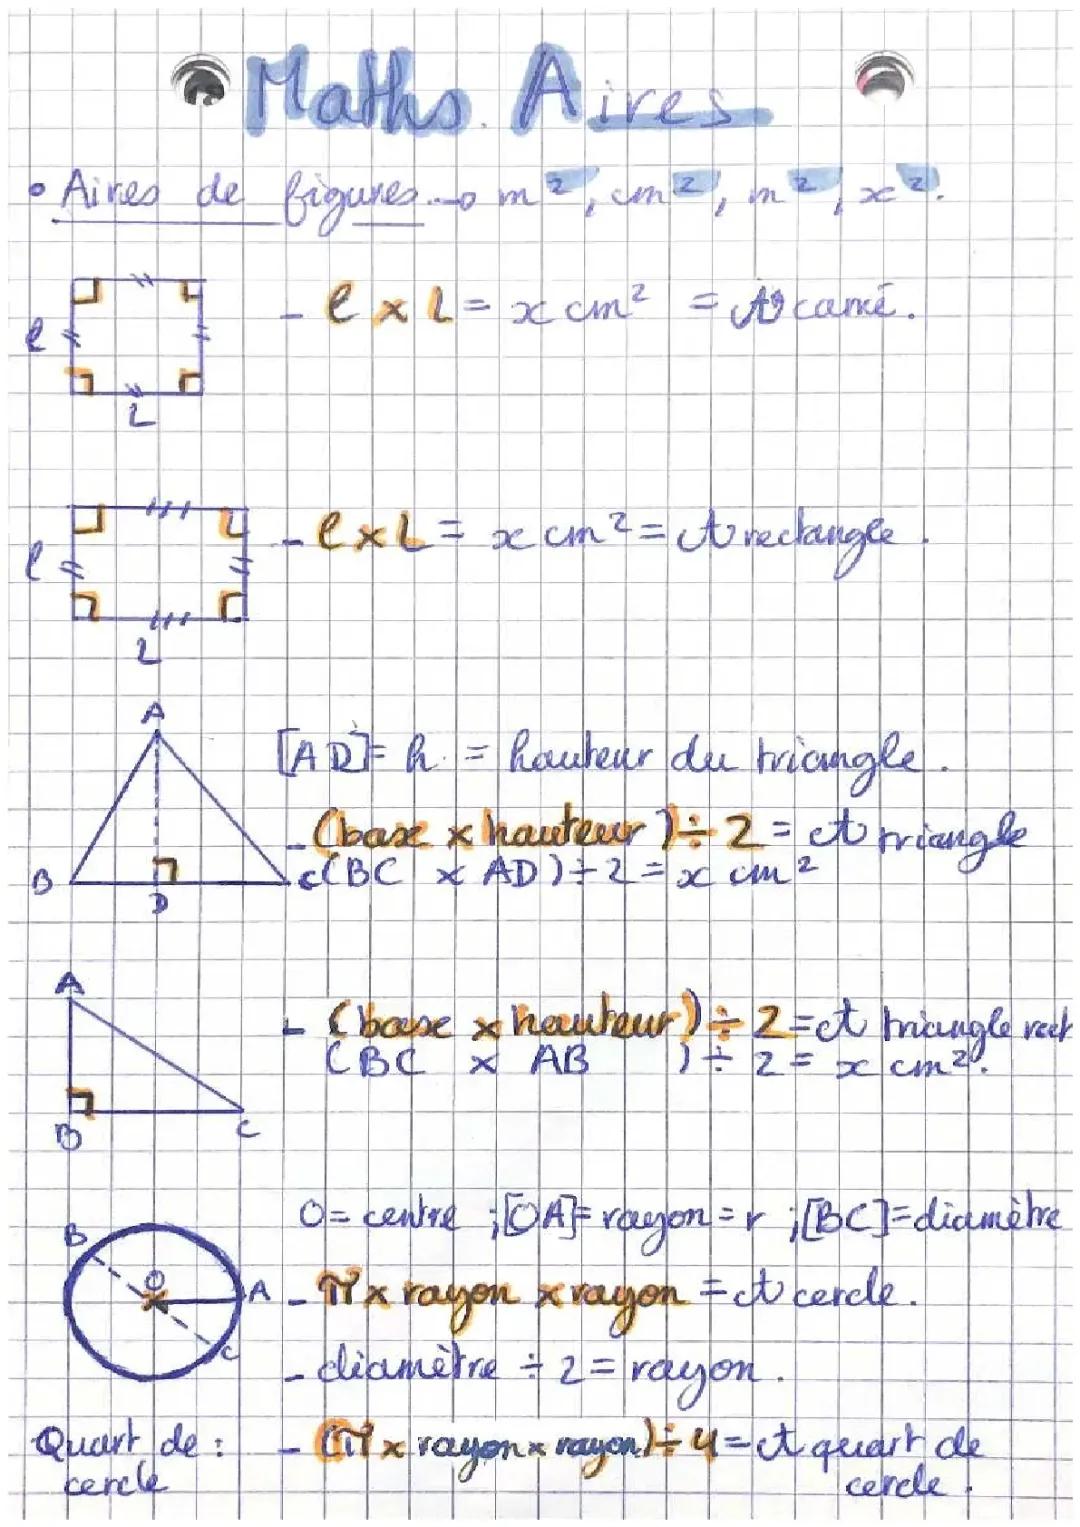 Maths Aires
• Aires de figures → m², cm², m², x².
l
L
- l x L = x cm² = A carré.
l
L
- l x L = x cm² = A rectangle.
A
B
D
C
[AD] = h = hauteur du triangle.
- (base x hauteur) ÷ 2 = A triangle
(BC x AD) ÷ 2 = x cm²
A
B
C
- (base x hauteur) ÷ 2 = A triangle rect
(BC x AB) ÷ 2 = x cm².
B
O
A
C
O = centre ; [OA] = rayon = r ; [BC] = diamètre
- π x rayon x rayon = A cercle.
- diamètre ÷ 2 = rayon.
Quart de : - (π x rayon x rayon) ÷ 4 = A quart de
cercle cercle.